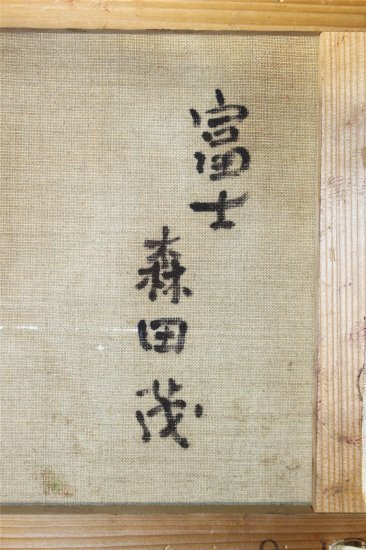 富士
森田茂